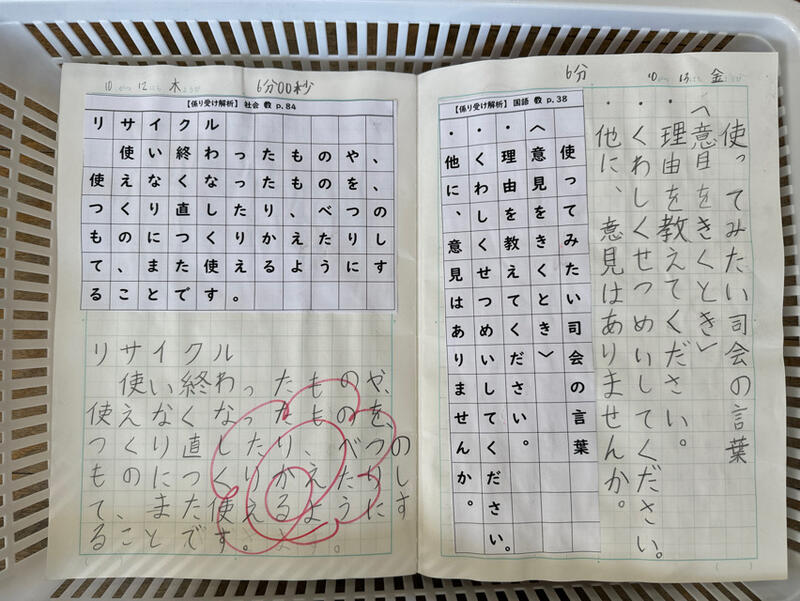 10がつ12にち木ようび
6分00秒
【係り受け解析】社会 教 p.84
リサイクル
使い終わったものや、
使えなくなったものを、
つくり直したり、べつの
ものにつくりかえたりし
て、また使えるようにす
ることです。
リサイクル
使い終わったものや、
使えなくなったものを、
つくり直したり、べつの
ものにつくりかえたりし
て、また使えるようにす
ることです。
6分
10 13 金
使ってみたい司会の言葉
〈意見をきくとき〉
・理由を教えてください。
・くわしくせつめいしてください。
・他に、意見はありませんか。
【係り受け解析】国語 教 p.38
使ってみたい司会の言葉
〈意見をきくとき〉
・理由を教えてください。
・くわしくせつめいしてください。
・他に、意見はありませんか。